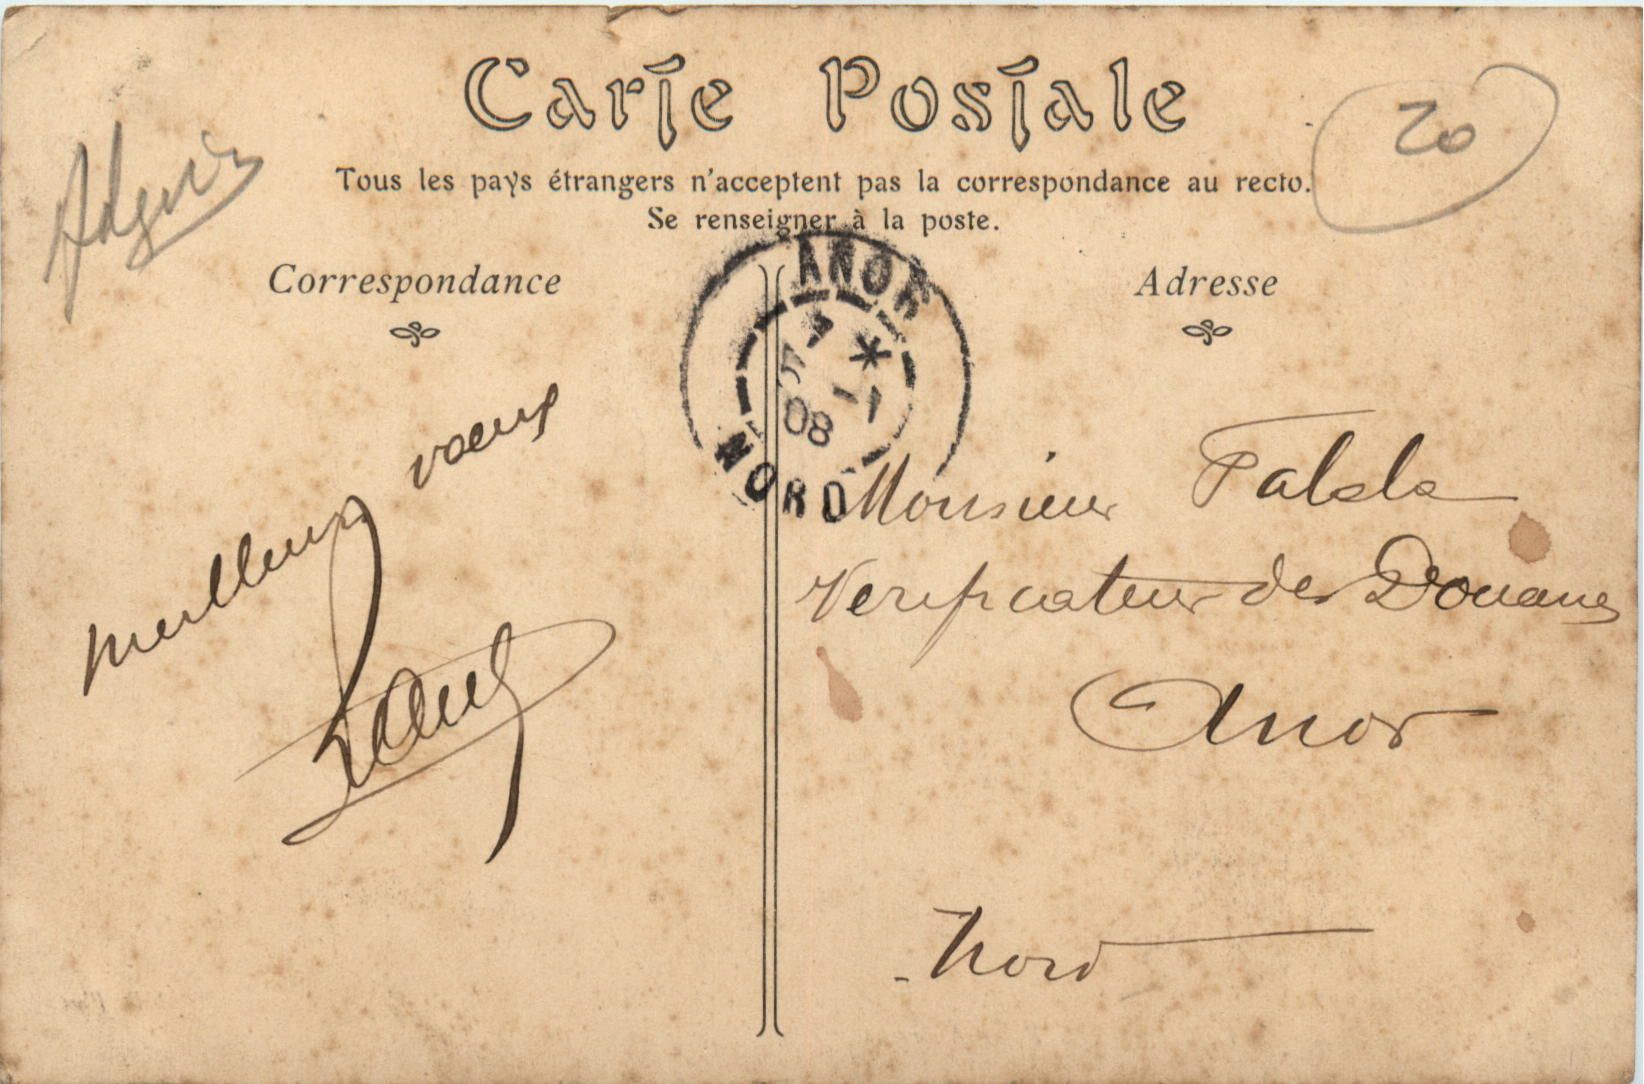 Carte Postale
20
Tous les pays étrangers n'acceptent pas la correspondance au recto.
Se renseigner à la poste.
Correspondance
Adresse
ANOR
08
NORD
meilleurs voeux
Monsieur
Verificateur des Douanes
Anor
Nord